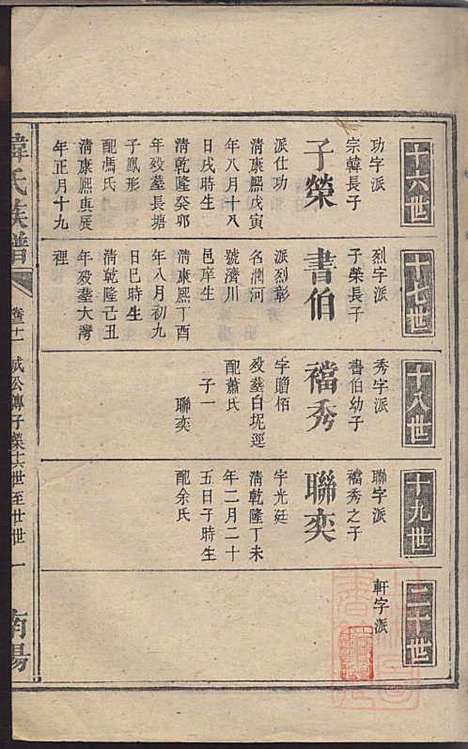 十六世
功字派
宗韓長子
子榮
派仕功
清康熙戊寅
年八月十八
日戌時生
清乾隆癸卯
年歿塟長塘
子鳳形
配馮氏
清康熙庚辰
年正月十九
十七世
烈字派
子榮長子
書伯
派烈彰
名潤河
號濟川
邑庠生
清康熙丁酉
年八月初九
日巳時生
清乾隆己丑
年歿塟大灣
裡
十八世
秀字派
書伯幼子
襠秀
字贍栢
歿塟白坭逕
配蕭氏
子一
聯奕
十九世
聯字派
襠秀之子
聯奕
字光廷
清乾隆丁未
年二月二十
五日子時生
配余氏
二十世
軒字派
韓氏族譜
卷十一
成公傳子榮十六世至廿世
一
南陽